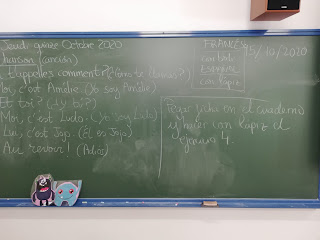 Jeudi quinze Octobre 2020
Chanson (canción)
T'appelles comment? (¿Cómo te llamas?)
Moi, c'est Amélie (Yo soy Amélie)
Et toi? (¿Y tú?)
Moi, c'est Ludo (Yo soy Ludo)
Lui, c'est Jojo (Él es Jojo)
Au revoir! (Adiós)
FRANCÉS
con boli
ESPAÑOL
con lápiz
15/10/2020
Pegar ficha en el cuaderno
y hacer con lápiz el
ejercicio 4.